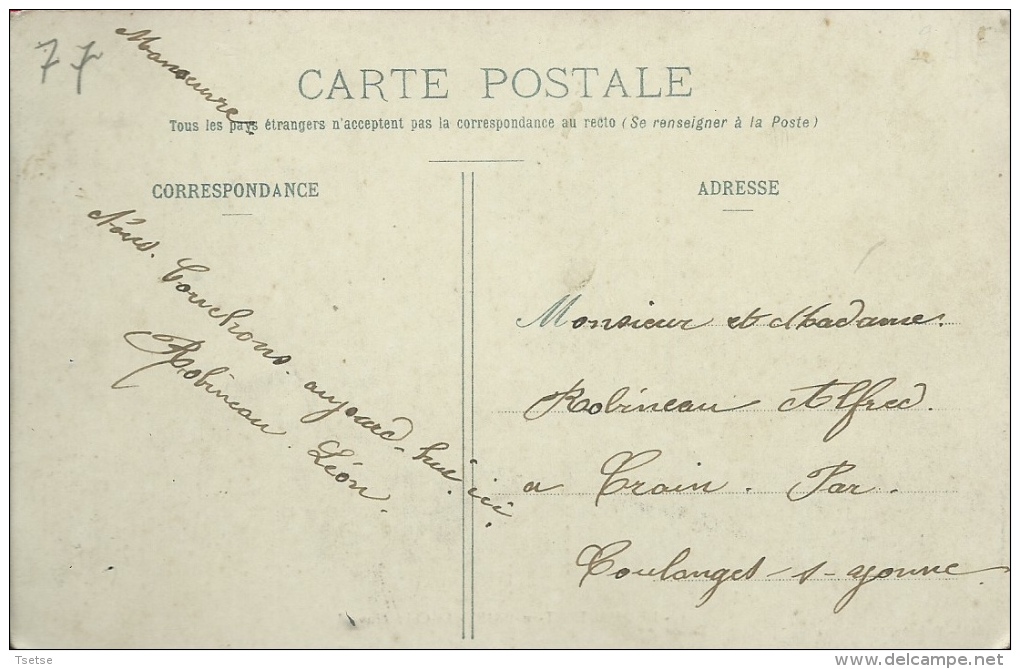 77
Manoeuvre
CARTE POSTALE
Tous les pays étrangers n'acceptent pas la correspondance au recto (Se renseigner à la Poste)
CORRESPONDANCE
Nous. Couchons. aujourd-hui. ici.
Robineau. Léon.
ADRESSE
Monsieur et Madame.
Robineau Alfred.
a Crain. Par.
Coulanges-s-yonne
Tsetse
www.delcampe.net